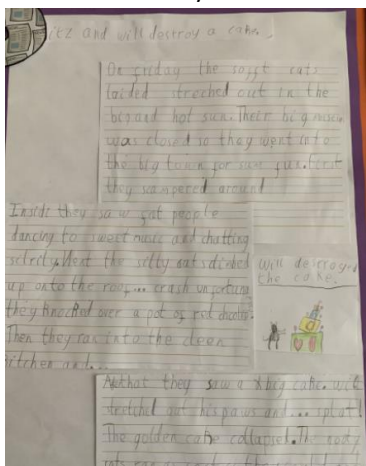 itz and will destroy a cake.
On friday the cats
laided streched out in the
big and hot sun. Their big
was closed so they went into
the big town for sum fun.
they wampered around
Inside they saw fat people
dancing to sweet music and chatting
the silly cats
up onto the roof... crash
they knocked over a pot of red
Then they ran into the cleen
kitchen and...
will destroyed
the cake.
that they saw a big cake. will
stretched out his paws and... splat!
The golden cake collapsed. The